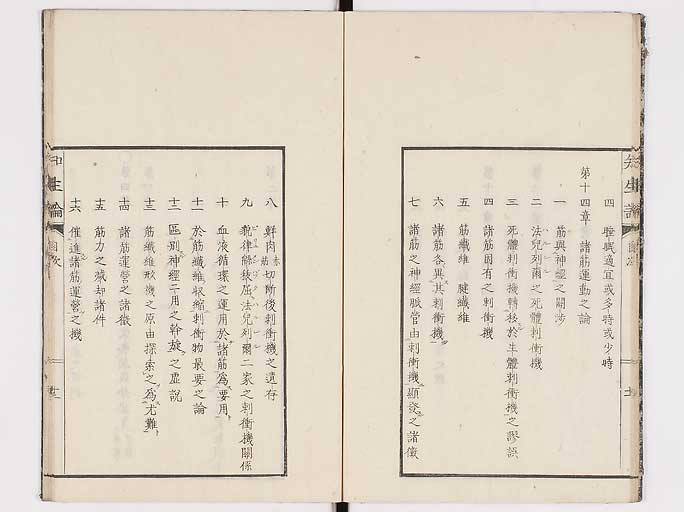 四 睡興適宜或多時或少時
第十四章 諸筋運動之論
一 筋與神經之關渉
二 法兒列爾之死體刺衝機
三 死體刺衝機轉移於生體刺衝機之謬誤
四 諸筋固有之刺衝機
五 筋纖維 腱纖維
六 諸筋各異其刺衝機
七 諸筋之神經脈管由刺衝機顯發之諸徵
知生論
目次
八 鮮肉切斷後刺衝機之遺存
九 解鈌屈法兒列爾二家之刺衝機關係
十 血液循環之運用於諸筋為要用
十一 於筋纖維收縮刺衝物最要之論
十二 區別神經二用之幹旋之虛説
十三 筋纖維形機之原由探索之為尤難
十四 諸筋運營之諸徴
十五 筋力之減却諸件
十六 催進諸筋運營之機
知生論
目次